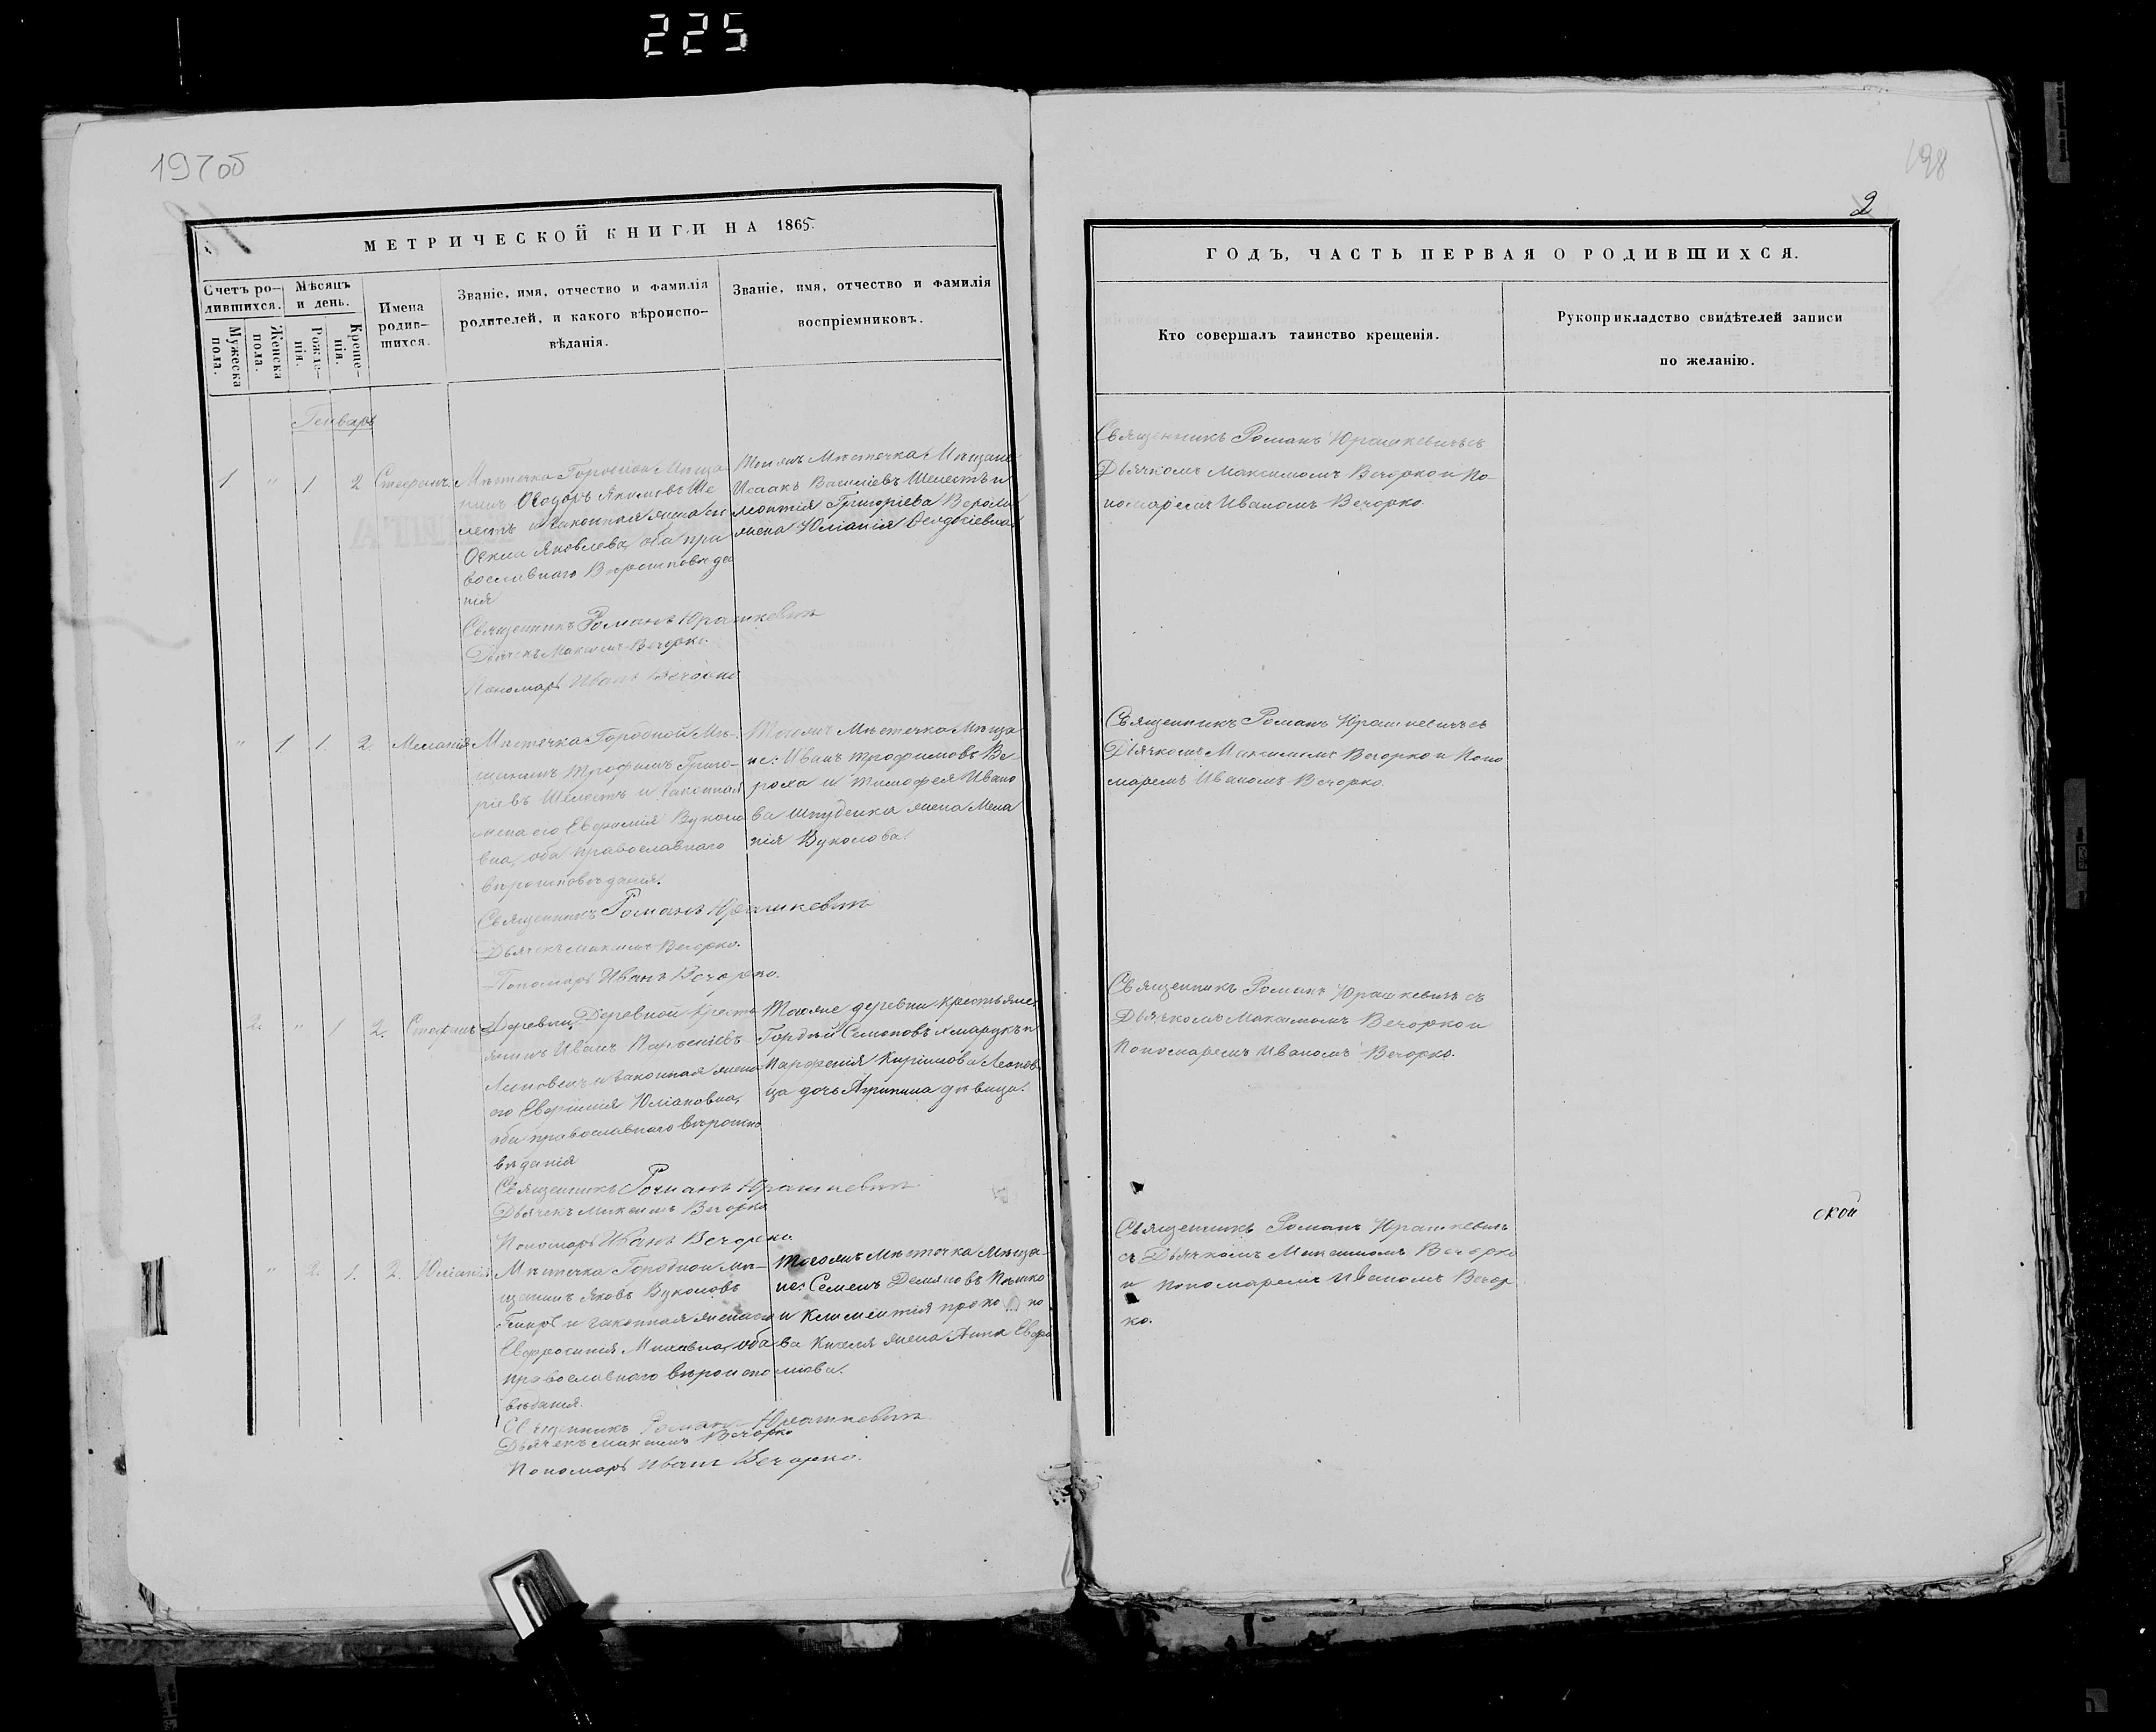 225
197об
198
2
МЕТРИЧЕСКОЙ КНИГИ НА 1865.
Счетъ ро-
дившихся.
Мѣсяцъ
и день.
Мужеска
пола.
Женска
пола.
Рожде-
нія.
Креще-
нія.
Имена
родив-
шихся.
Званіе, имя, отчество и фамилія
родителей, и какого вѣроиспо-
вѣданія.
Званіе, имя, отчество и фамилія
воспріемниковъ.
Генварь
1 " 1 2 Стефанъ.
Мѣстечка Городной Мѣща-
нинъ Ѳеодоръ Якимовъ Ше
лестъ и законная жена его
Яковлева, оба пра
вославнаго Вѣроисповѣда
нія
Священникъ Романъ Юрашкевичъ
Дьячекъ Максимъ Вечорко.
Пономарь Иванъ Вечорко
Мѣстечка Мѣщане
Исаакъ Василіевъ Шелестъ и
Григоріева
жена Юліанія
" 1 1. 2. Меланія
Мѣстечка Городной Мѣ-
щанинъ Трофимъ Григо-
ріевъ Шелестъ и законная
жена его Евфимія Вуколо
вна, оба православнаго
вѣроисповѣданія.
Священникъ Романъ Юрашкевичъ
Дьячекъ Максимъ Вечорко.
Пономарь Иванъ Вечорко.
Тогожъ Мѣстечка Мѣща
не: Иванъ Трофимовъ Ве-
роха и Тимофея Ивано
ва Шпуденка жена Мела
нія Вуколова.
2. " 1 2. Стефанъ
Деревни Деревной Кресть
янинъ Иванъ Парфеніевъ
и законная жена
его Евфимія Юліановна,
оба православнаго вѣроиспо
вѣданія
Священникъ Романъ Юрашкевичъ
Дьячекъ Максимъ Вечорко
Пономарь Иванъ Вечорко
Тоя же деревни Крестьяне
Гордѣй Семеновъ Хмарукъ и
Парфенія Кирилова Леонов
ца дочь Агрипина дѣвица.
" 2. 1. 2. Юліанія
Мѣстечка Городной Мѣ-
щанинъ Яковъ Вуколовъ
и законная жена его
Евфросинія оба
православнаго вѣроиспо
вѣданія.
Священникъ Романъ Юрашкевичъ
Дьячекъ Максимъ Вечорко
Пономарь Иванъ Вечорко.
Тогожъ Мѣстечка Мѣща-
не: Семенъ Демяновъ Пѣшко
и Климентія
ва Киселя жена Анна Евфи
мова.
ГОДЪ, ЧАСТЬ ПЕРВАЯ О РОДИВШИХСЯ.
Кто совершалъ таинство крещенія.
Рукоприкладство свидѣтелей записи
по желанію.
Священникъ Романъ Юрашкевичъ съ
Дьячкомъ Максимомъ Вечорко и По-
номаремъ Иваномъ Вечорко.
Священникъ Романъ Юрашкевичъ съ
Дьячкомъ Максимомъ Вечорко и Поно
маремъ Иваномъ Вечорко.
Священникъ Романъ Юрашкевичъ съ
Дьячкомъ Максимомъ Вечорко и
Пономаремъ Иваномъ Вечорко.
Священникъ Романъ Юрашкевичъ
съ Дьячкомъ Максимомъ Вечорко
и Пономаремъ Иваномъ Вечор
ко.
ской